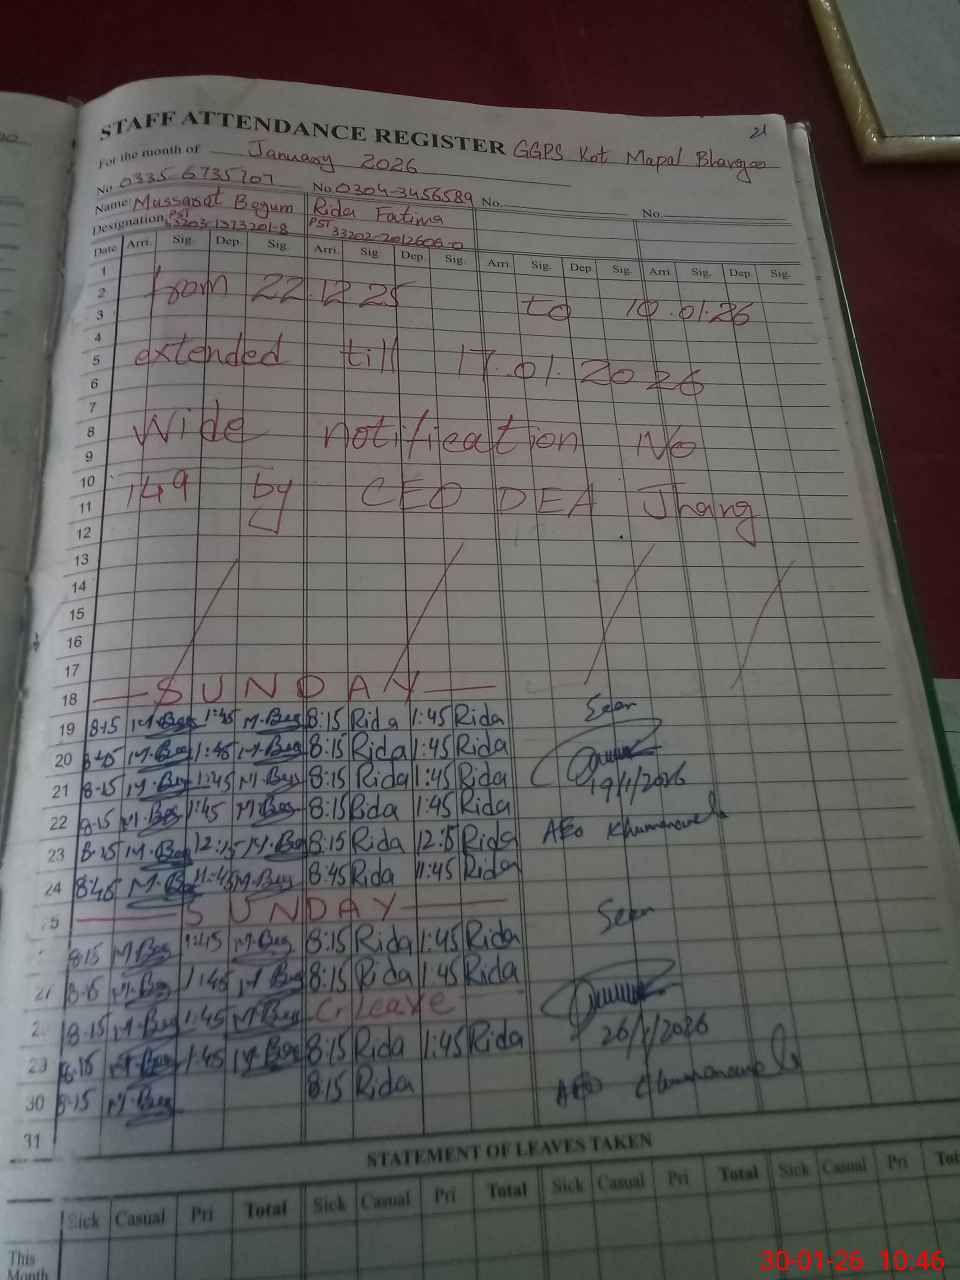 21
STAFF ATTENDANCE REGISTER GGPS Kot Mapal Bhangoo
For the month of January 2026
No 0335-6735707 No 0304-3456589 No. No.
Name: Mussarat Begum Rida Fatima
Designation PST PST
33202-2012606-0
Date Arri. Sig. Dep. Sig. Arri. Sig. Dep. Sig. Arri. Sig. Dep. Sig. Arri. Sig. Dep. Sig.
1
2 from 22.12.25 to 10.01.26
3
4
5 extended till 17.01.2026
6
7
8 Wide notification No
9
10
11 149 by CEO DEA Jhang
12
13
14
15
16
17
18 SUNDAY
19 8:15 M.Beg 1:45 M.Beg 8:15 Rida 1:45 Rida Seen
20 8:45 M.Beg 1:45 M.Beg 8:15 Rida 1:45 Rida
21 8:15 M.Beg 1:45 M.Beg 8:15 Rida 1:45 Rida 19/1/2026
22 8:15 M.Beg 1:45 M.Beg 8:15 Rida 1:45 Rida
23 8:15 M.Beg 12:15 M.Beg 8:15 Rida 12:15 Rida AEO
24 8:45 M.Beg 1:45 M.Beg 8:45 Rida 1:45 Rida
5 SUNDAY Seen
8:15 M.Beg 1:45 M.Beg 8:15 Rida 1:45 Rida
27 8:15 M.Beg 1:45 M.Beg 8:15 Rida 1:45 Rida
2 8:15 M.Beg 1:45 M.Beg C. Leave 26/1/2026
29 8:15 M.Beg 1:45 M.Beg 8:15 Rida 1:45 Rida
30 8:15 M.Beg 8:15 Rida AEO
31
STATEMENT OF LEAVES TAKEN
Sick Casual Pri Total Sick Casual Pri Total Sick Casual Pri Total Sick Casual Pri Tot
This
Month
30-01-26 10:46